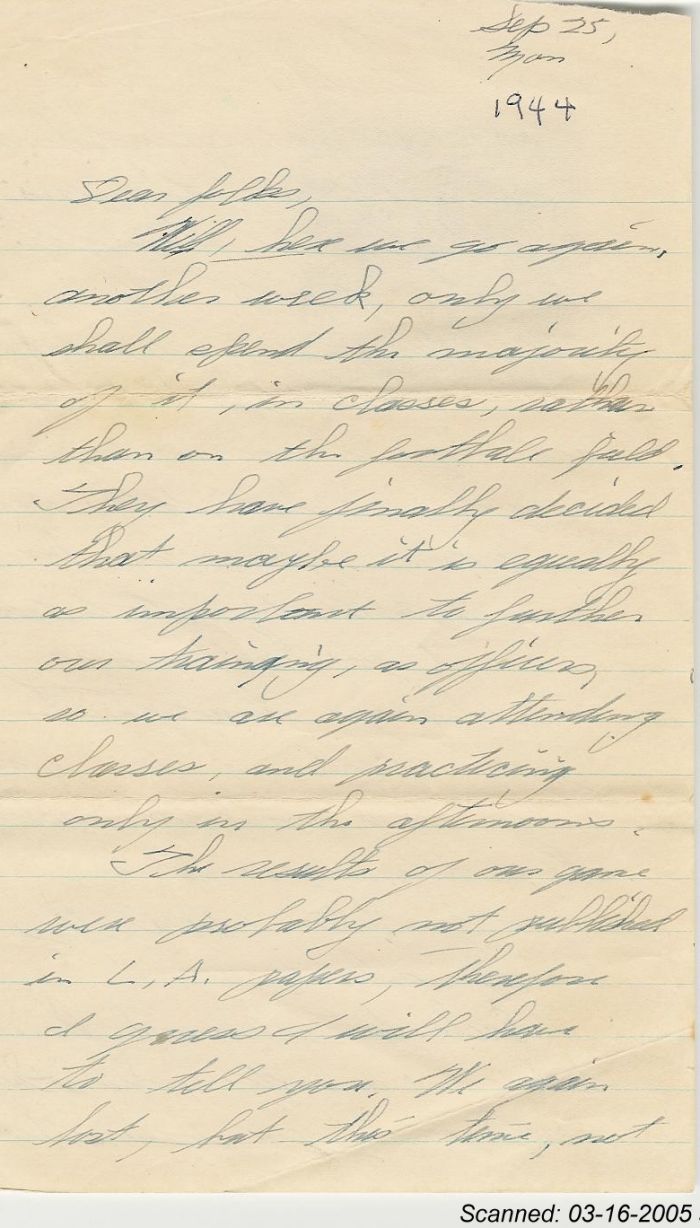 Sep 25,
Mon
1944
Dear folks,
Well, here we go again,
another week, only we
shall spend the majority
of it, in classes, rather
than on the football field.
They have finally decided
that maybe it is equally
as important to further
our training, as officers,
so we are again attending
classes, and practicing
only in the afternoons.
The results of our game
were probably not published
in L.A. papers, therefore
I guess I will have
to tell you. We again
lost, but this time, not
Scanned: 03-16-2005